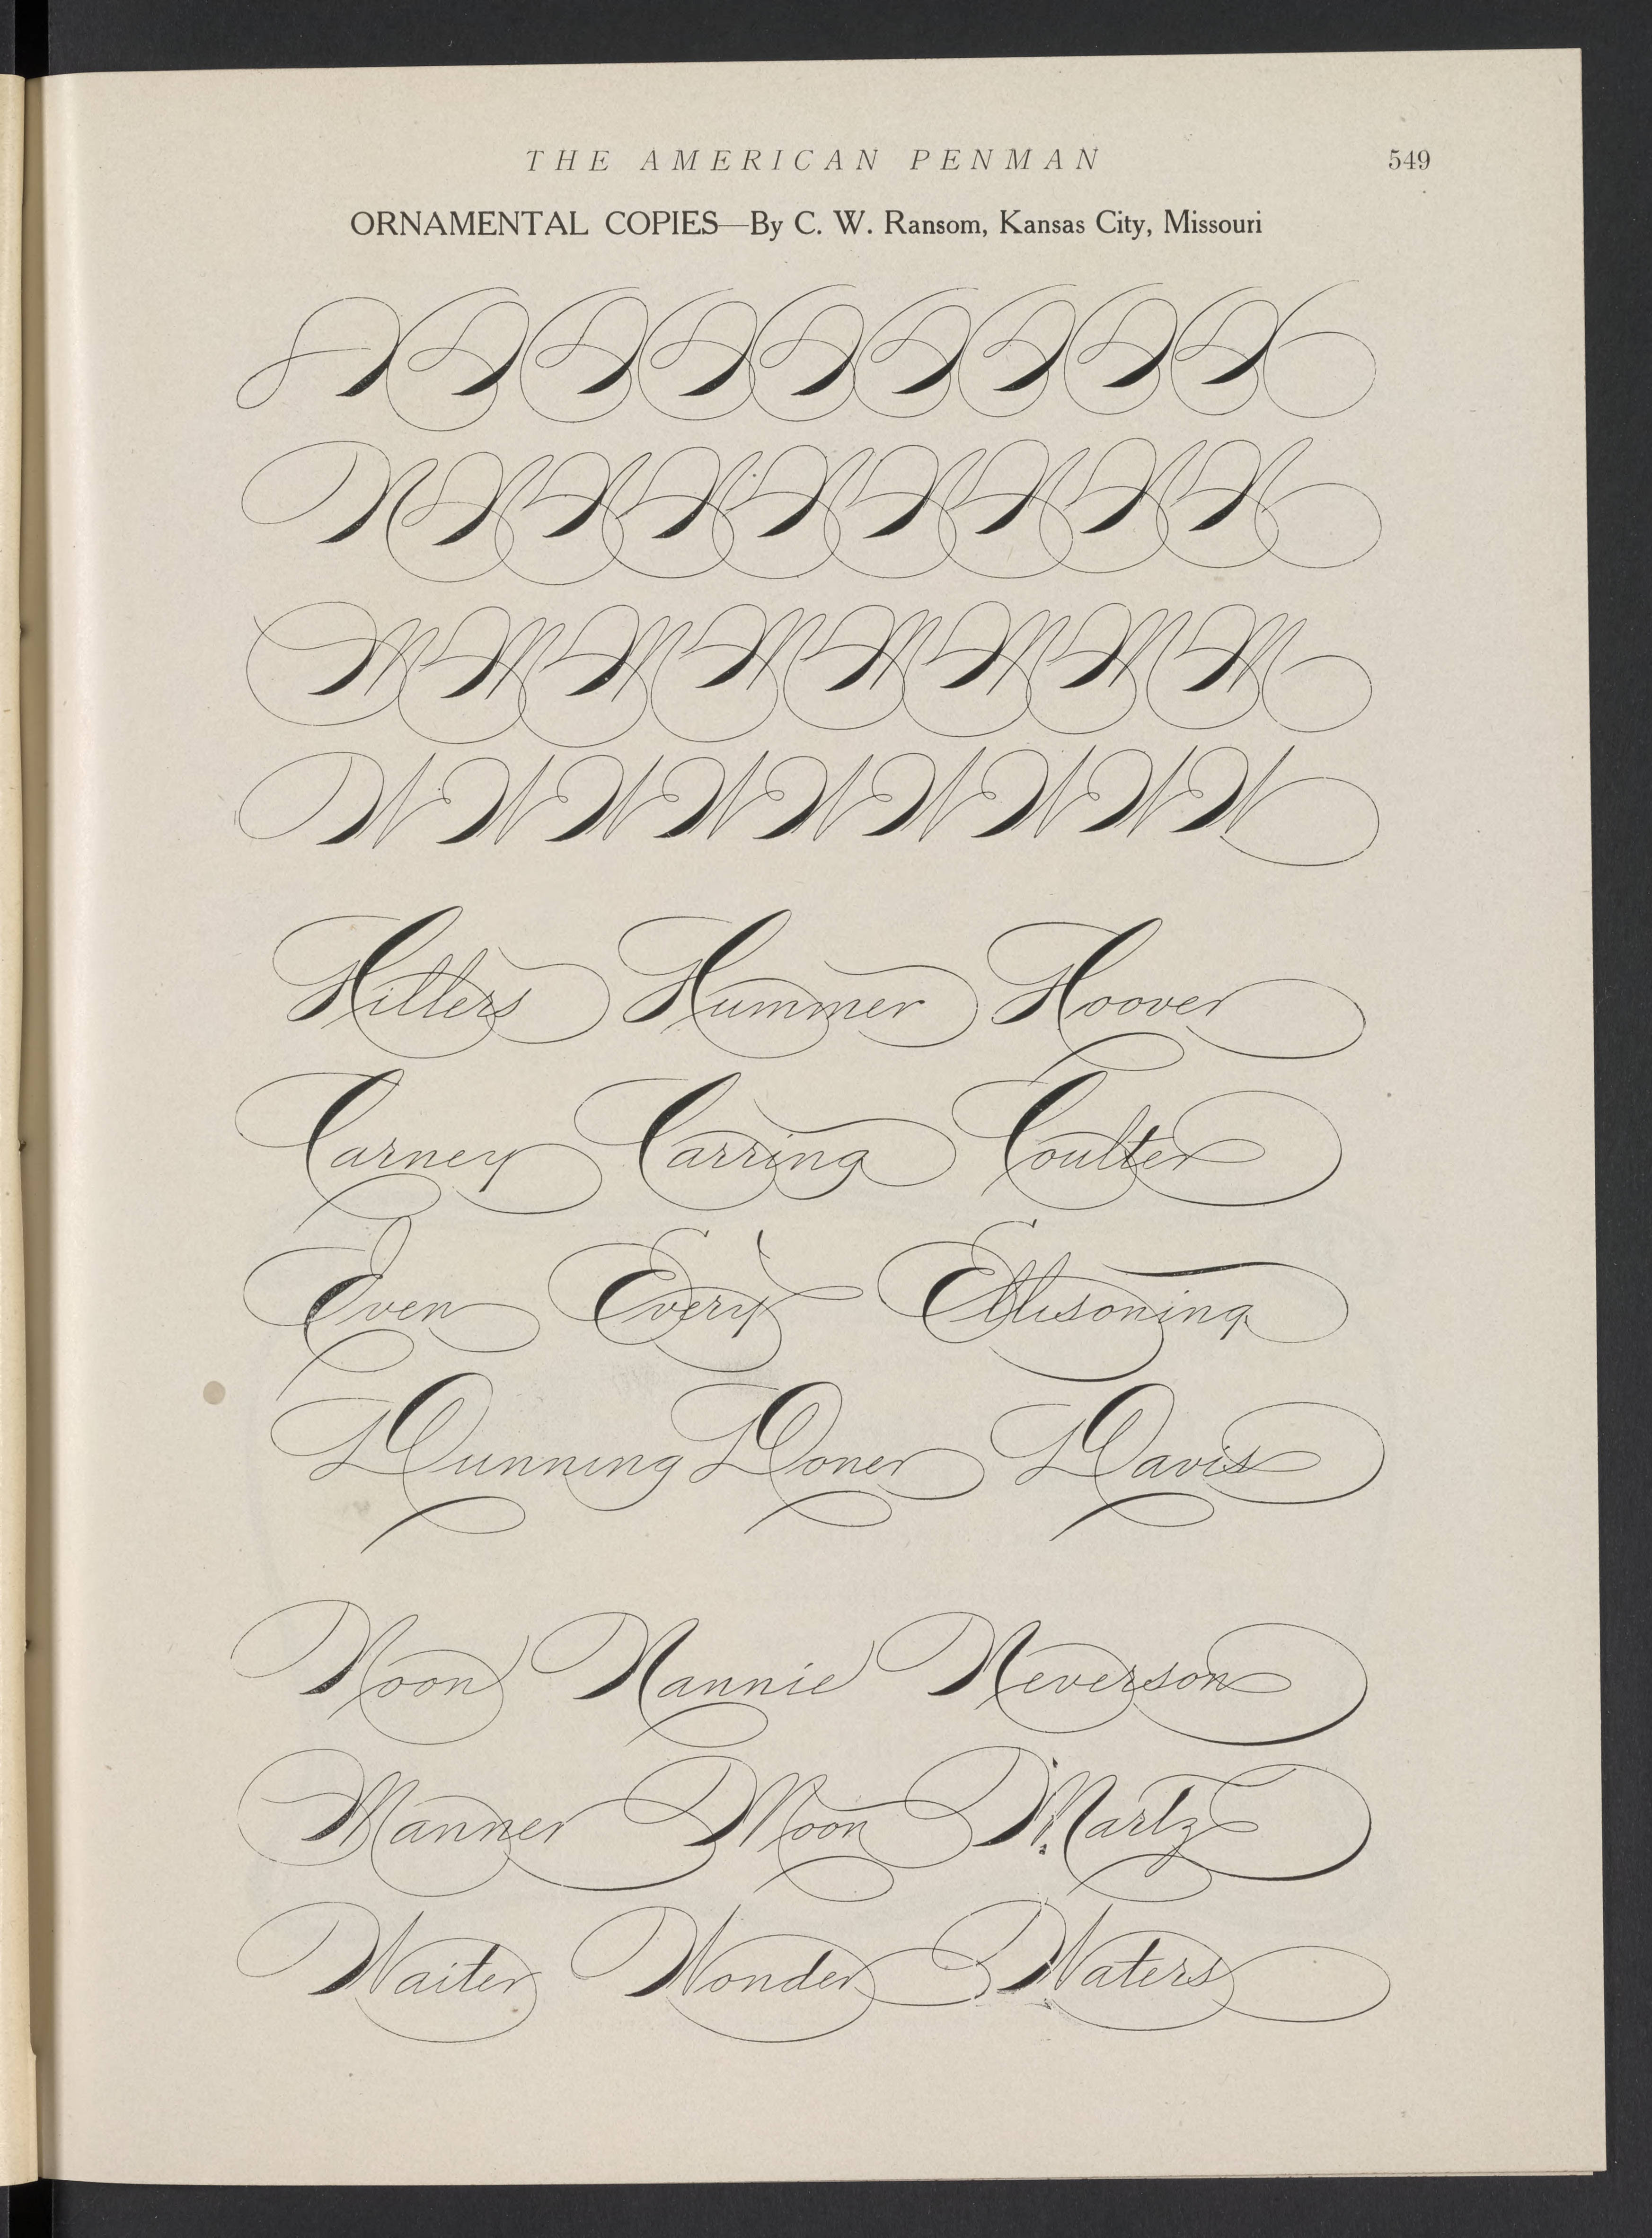 THE AMERICAN PENMAN 549
ORNAMENTAL COPIES—By C. W. Ransom, Kansas City, Missouri
N N N N N N N N N
M M M M M M M M
W W W W W W W W W
Hitters Hummer Hoover
Carney Carring Coulter
Even Every Ellisoning
Dunning Doner Davis
Noon Nannie Neverson
Manner Moon Martz
Waiter Wonder Waters